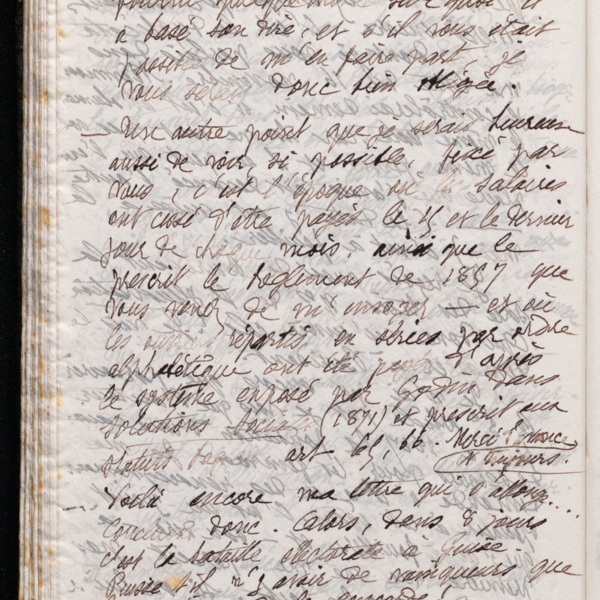 a basé son dire, et s'il vous était
possible de m'en faire part, je
vous serais donc bien obligée.
— Un autre point que je serais heureuse
aussi de voir, si possible, fixé par
vous, c'est l'époque où les salaires
ont cessé d'être payés le 15 et le dernier
jour de chaque mois, ainsi que le
prescrit le Règlement de 1857 que
vous venez de m'envoyer — et où
les ouvriers répartis en séries par ordre
alphabétique ont été payés d'après
le système exposé par Godin dans
Solutions Sociales (1871) et prescrit aux
statuts art 65, 66. Merci d'avance
et toujours.
— Voilà encore ma lettre qui s'allonge...
donc. Alors, dans 8 jours
c'est la bataille électorale à Guise.
Puisse-t-il n'y avoir de vainqueurs que